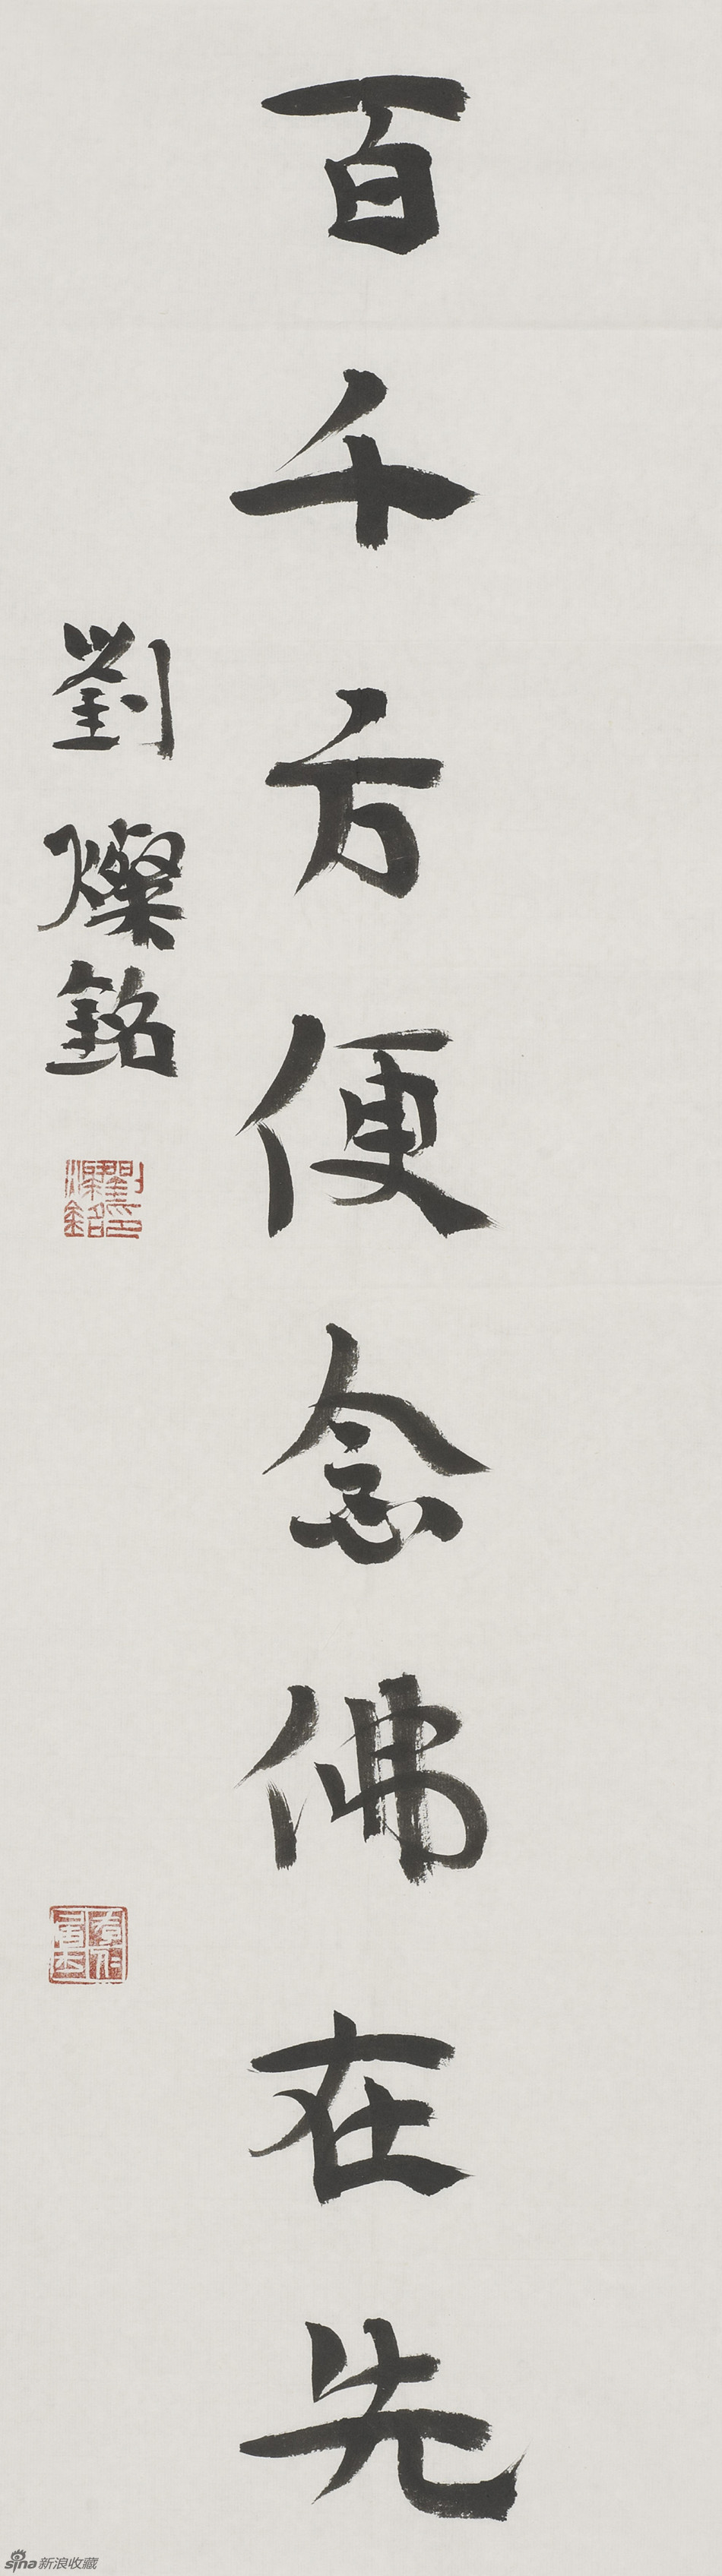 百千方便念佛在先
劉燦銘
sina新浪收藏